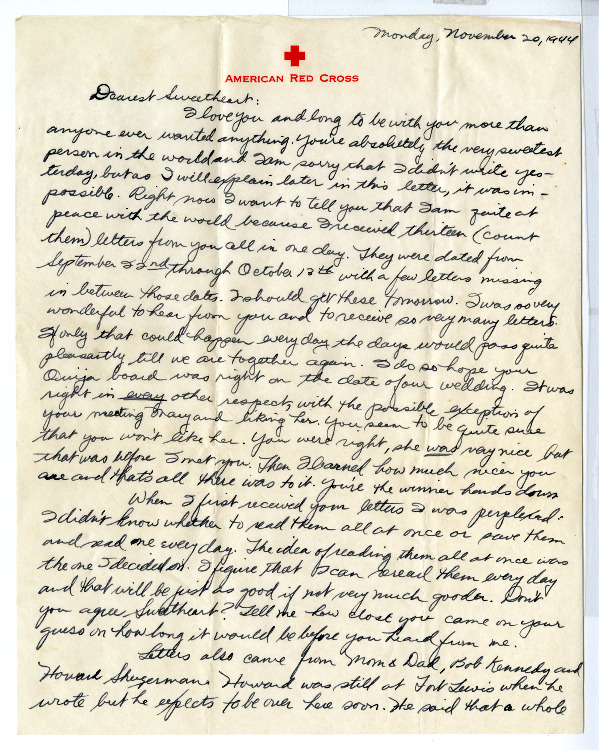 Monday, November 20, 1944
AMERICAN RED CROSS
Dearest Sweetheart:
I love you and long to be with you more than
anyone ever wanted anything. You're absolutely the very sweetest
person in the world and I am sorry that I didn't write yes-
terday, but as I will explain later in this letter, it was im-
possible. Right now I want to tell you that I am quite at
peace with the world because I received thirteen (count
them) letters from you all in one day. They were dated from
September 22nd through October 12th with a few letters missing
in between those dates. I should get these tomorrow. It was so very
wonderful to hear from you and to receive so very many letters.
If only that could happen every day the days would pass quite
pleasantly till we are together again. I do so hope your
Ouija board was right on the date of our wedding. It was
right in every other respect, with the possible exception of
your meeting Mary and liking her. You seem to be quite sure
that you won't like her. You were right, she was very nice but
that was before I met you. Then I learned how much nicer you
are and that's all there was to it. You're the winner hands down
When I first received your letters I was perplexed.
I didn't know whether to read them all at once or save them
and read one every day. The idea of reading them all at once was
the one I decided on. I figure that I can reread them every day
and that will be just as good if not very much gooder. Don't
you agree, Sweetheart? Tell me how close you came on your
guess on how long it would be before you heard from me.
Letters also came from Mom & Dad, Bob Kennedy and
Howard. Howard was still at Fort Lewis when he
wrote but he expects to be over here soon. He said that a whole